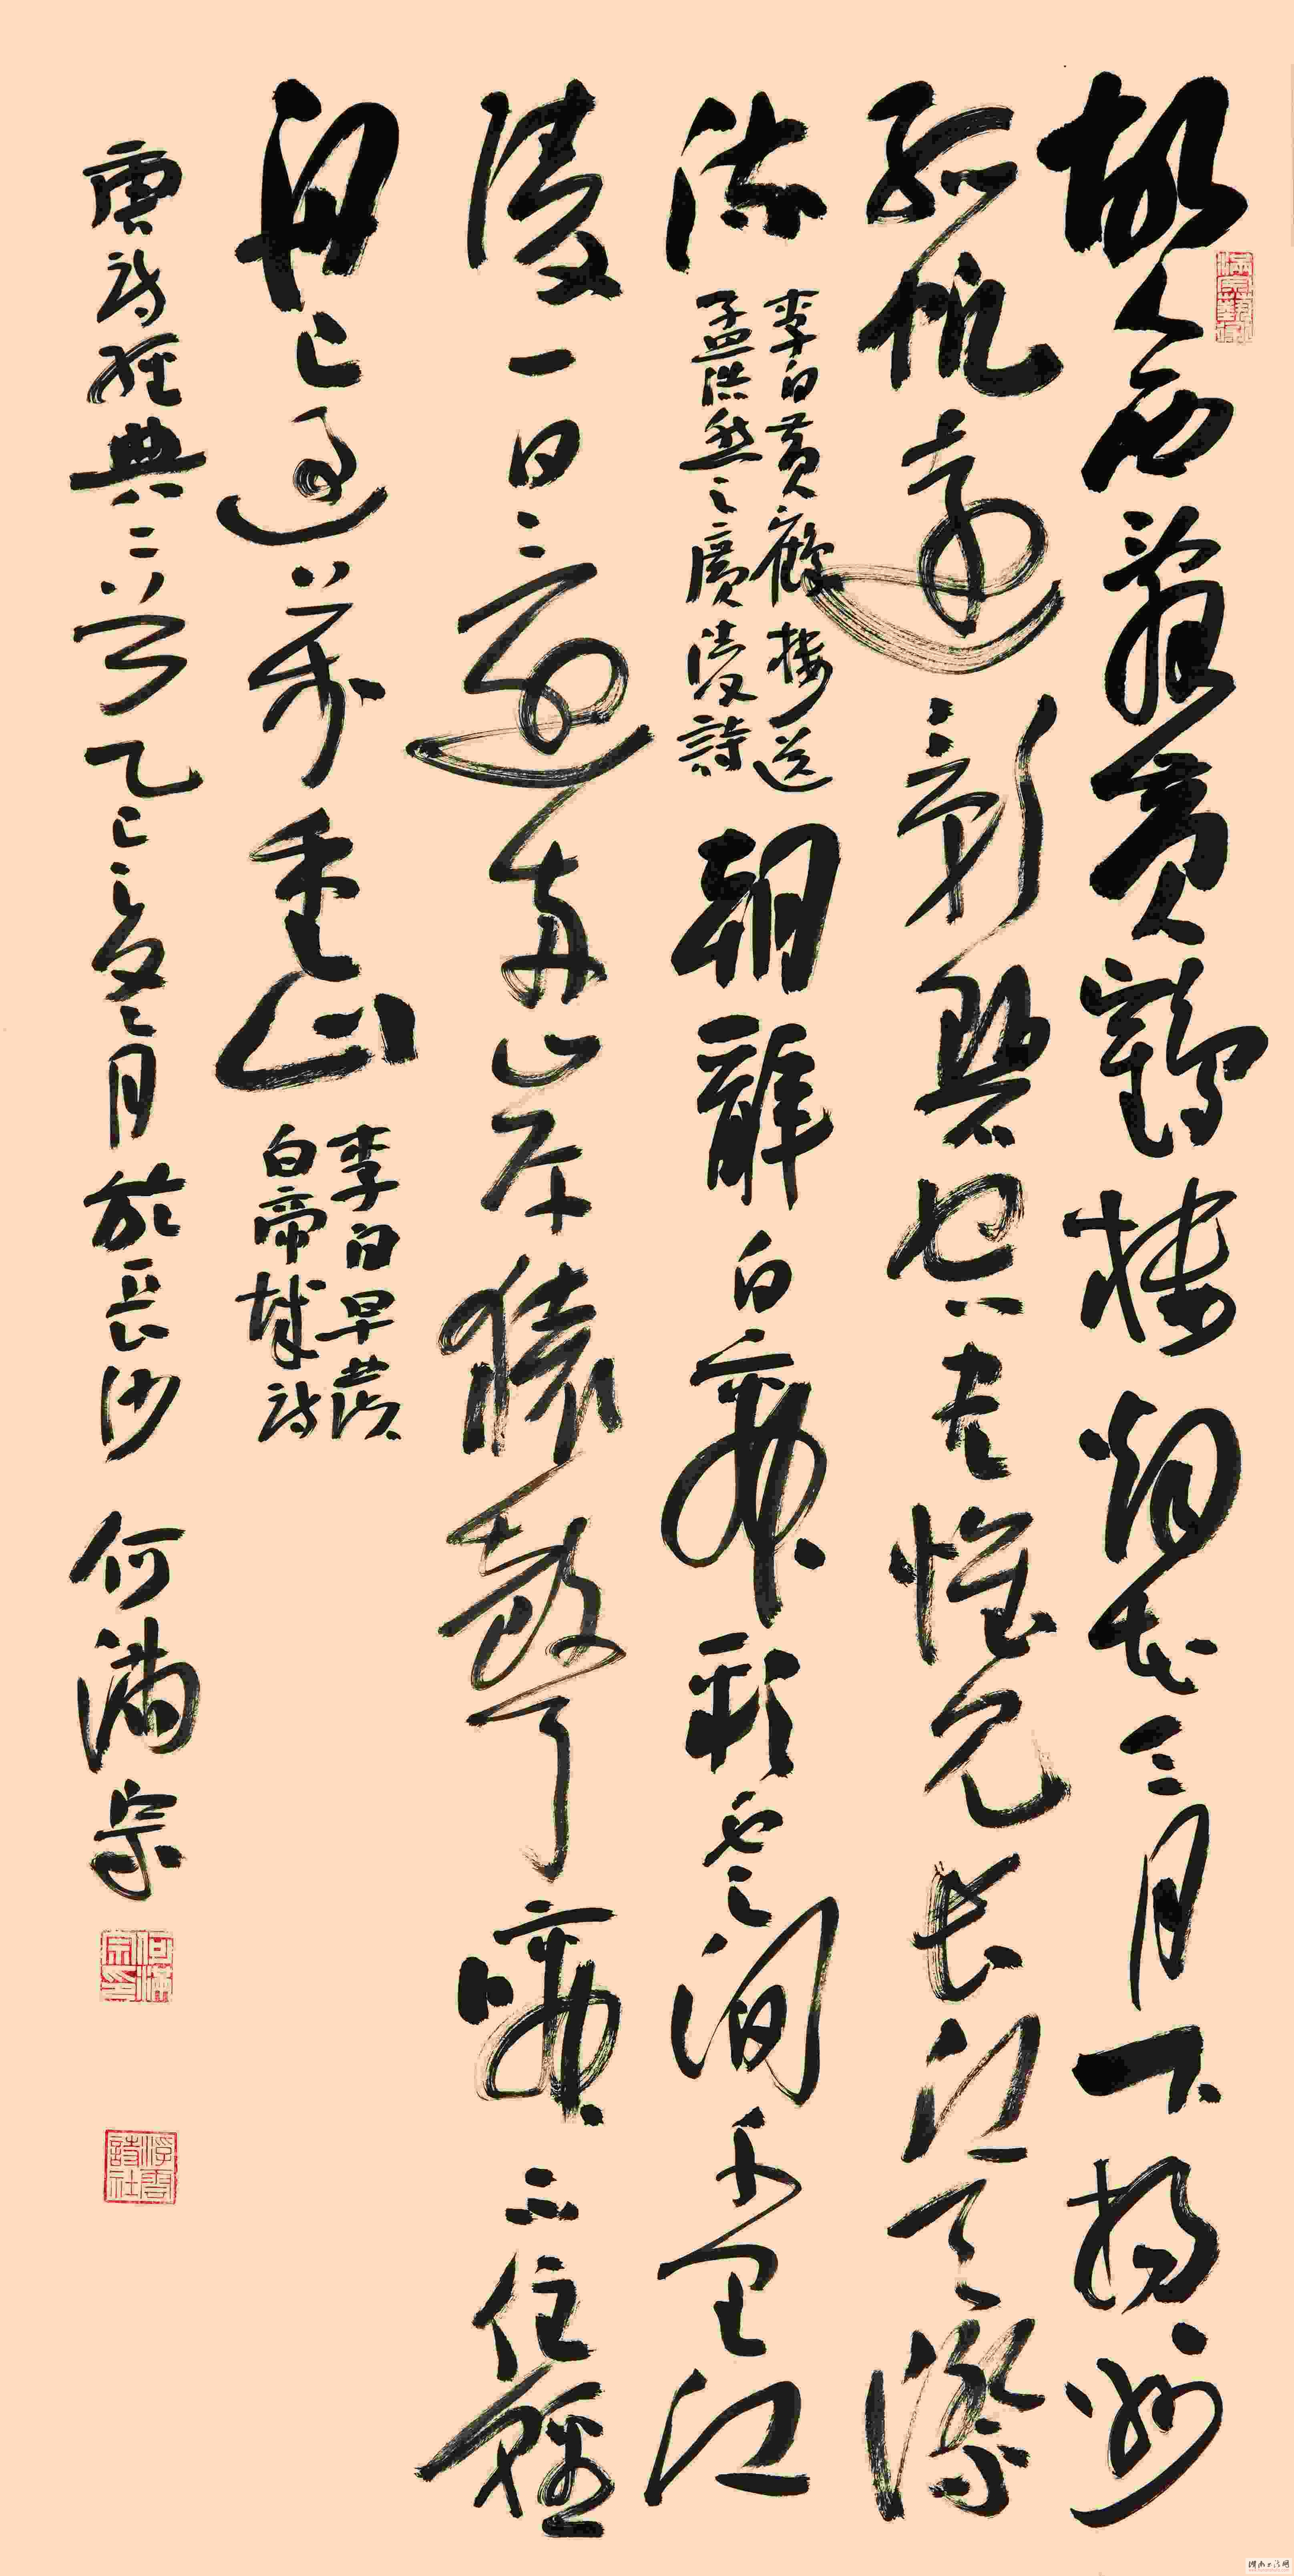 故人西辭黃鶴樓烟花三月下揚州
孤帆遠影碧空盡惟見長江天際
流
李白黃鶴樓送
孟浩然之廣陵詩
朝辭白帝彩雲間千里江
陵一日還兩岸猿聲啼不住輕
舟已過萬重山
李白早發
白帝城詩
唐詩經典二首乙巳夏月於長沙 何滿宗
何滿宗印
浮雲詩社